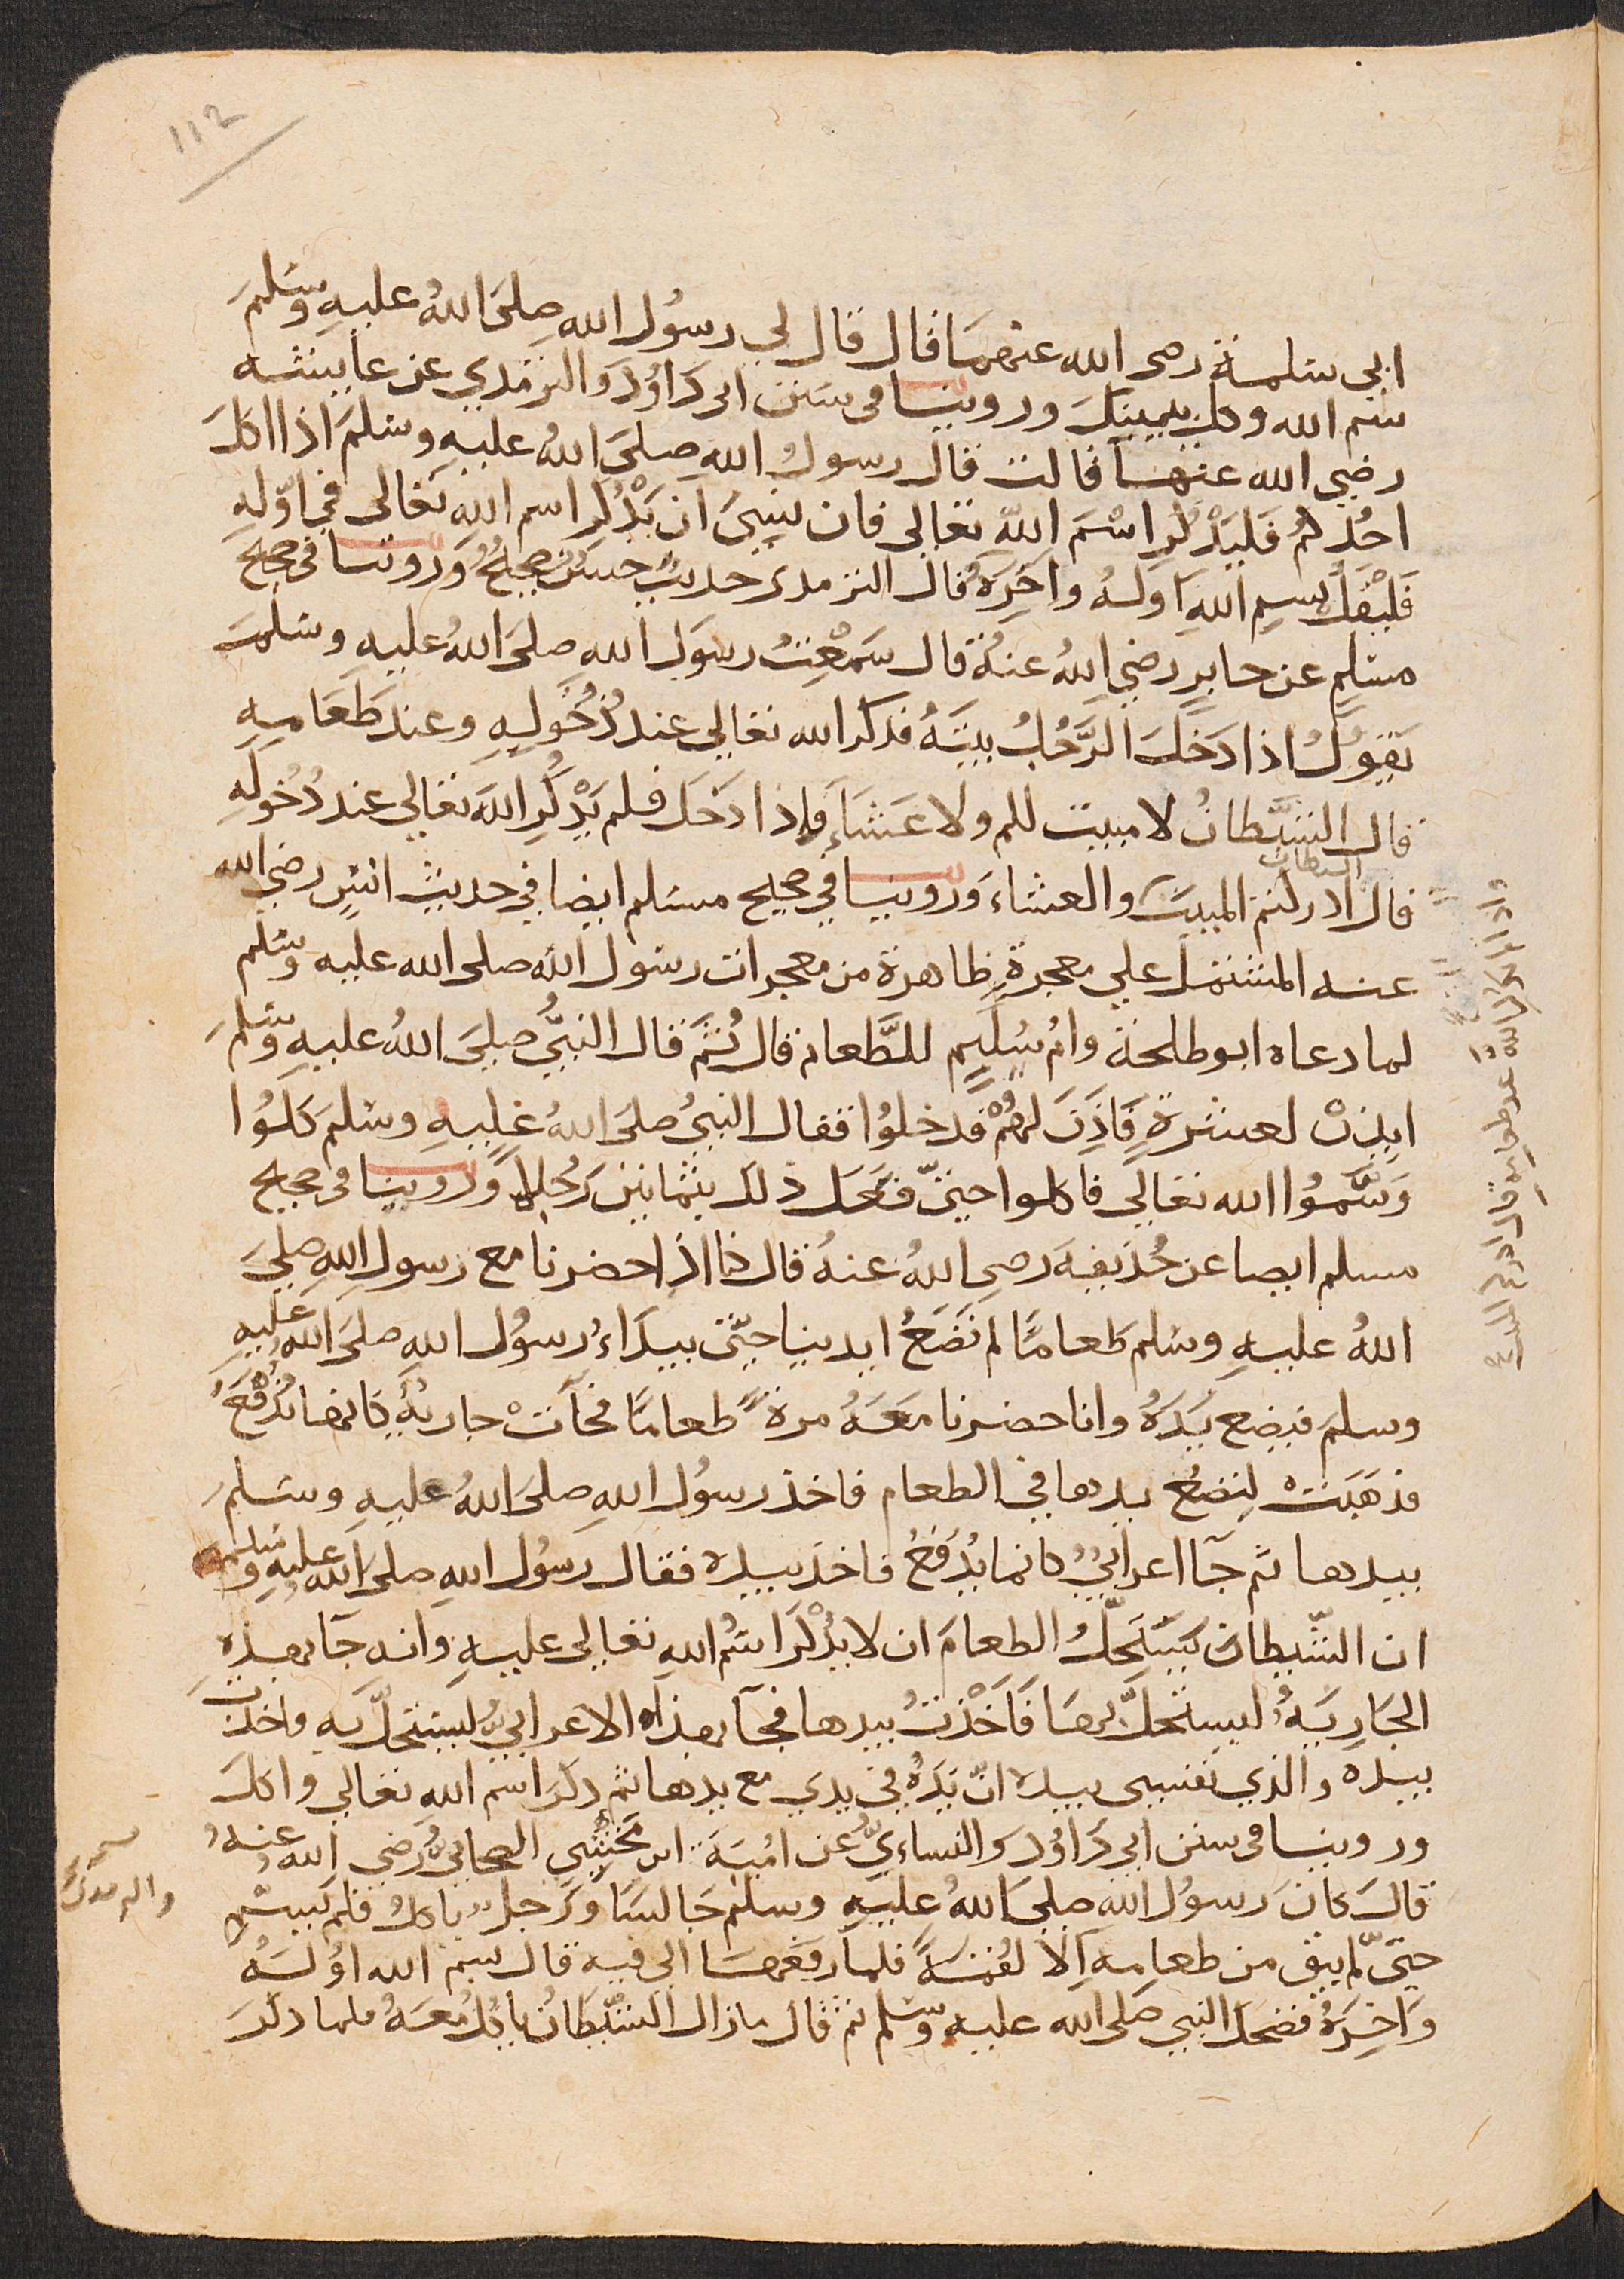 112
ابي سلمة رضى الله عنهما قال قال لي رسُول الله صلى اللهُ عليهِ وسلمَ
سَم الله وكل بيمينكَ وروينا فى سنن ابى دَاوُدَ والترمذي عن عايشه
رضي الله عنها قالت قال رسولُ اللهِ صلىَ اللهُ عليهِ وسلمَ اذا اكلَ
احُدكُم فَليَذْكُرِ اسْمَ اللّهِ تعالى فان نَسِيَ ان يَذْكُرَ اسم اللهِ تَعَالى في اوّلهِ
فَليْقُلْ بسمِ اللهِ اوَلَهُ واخِرَهُ قال الترمذى حديثٌ حسَنٌ صحيحٌ وَروينا فى صحيح
مسْلم عن جابرٍ رضيَ اللهُ عنهُ قال سَمعْتُ رسوَل الله صلىَ اللهُ عليهِ وسلمَ
يَقولُ اذا دَخَلَ الرَّجُلُ بيتَهُ فذكر الله تعالي عند دُخُولِهِ وعند طَعَامِهِ
قال الشيَّطانُ لا مبيت لكم ولا عَشَاءَ فإذا دَخَل فلم يَذْكُرِ اللهَ تعَالي عند دُخُولهِ
الشيطان
قال ادركتم المبيتَ والعشاءَ وَروينا في صحيح مسلم ايضا في حديث انسٍ رضي الله
عنه المشتمل علي معجزةٍ ظاهرة من معجزات رسول الله صلى الله عليه وسلم
لما دعاه ابو طلحة وامُ سُليمٍ للطَّعام قال ثُمَّ قال النبيُّ صليَ اللهُ عليهِ وسَلمَ
ايذنْ لعشرةٍ فَاذِنَ لهُمْ فدخلوُا فقال النبيُ صلىَ اللهُ عليهِ وسلمَ كلوُا
وَسَمُّوُا الله تعَالي فاكلوا حتيّ فعَلَ ذلك بثمانين رَجُلا وَروينا فى صحيح
مسلم ايضا عن حُذيفهَ رضي اللهُ عنهُ قال كنا اذا حضرنا مع رسولِ اللهِ صليَ
اللهُ عليهِ وسلم طعامًا لم نَضَعْ ايدينا حتّى يبدَاءَ رسوُل الله صلىَ اللهُ عليهِ
وسلمَ فيضع يَدَهُ وانا حضرنا معَهُ مرةً طعامًا فجآتْ جاريةٌ كانها تُدْفَعُ
فذهَبَتْ لِتضعُ يدها في الطعام فاخذ رسوُل اللهِ صلىَ اللهُ عليهِ وسَلمَ
بيدها ثم جآ اعرابيٌ كانما يُدْفعُ فاخذ بيده فقال رَسوُل اللهِ صلىَ اللهُ عليهِ وسلم
ان الشّيطان يَستَحلُّ الطعامَ ان لا يُذْكَرَ اسْمُ اللهِ تعَالي عليهِ وانه جآ بهذهِ
الجَاريَةِ ليستحلَّ بها فَاَخَذْتُ بيدها فجآ بهذاه الاعرابيُّ ليستحلَّ بهِ واخذتُ
بيده والذي نفسي بيده انّ يَدَهُ في يدي مع يدها ثم ذكرَ اسم الله تعَالي واكلَ
وروينا فى سنن ابي دَاوُد والنساءيُّ عن اميةَ ابن مَخشِي الصحابيُ رَضي الله عنهُ
قالَ كانَ رَسوُل اللهِ صليَ اللهُ عليهِ وسلم جَالسًا ورَجلٌ ياكلُ فلم يُسَمِّ
حتيّ لم يبق من طعامهِ الا لقُمَةً فلما رفعَهَا الى فيهِ قال بسم الله اوُلَهُ
وَاخِرَهُ فضحَكَ النبي صلى الله عليهِ وسلم ثم قال ما زال الشيَّطانُ ياكُلُ معَهُ فلما ذكرَ
واذا لم يذكر الله تعالى عند طعامه قال ادركتم المبيت
والترمذى